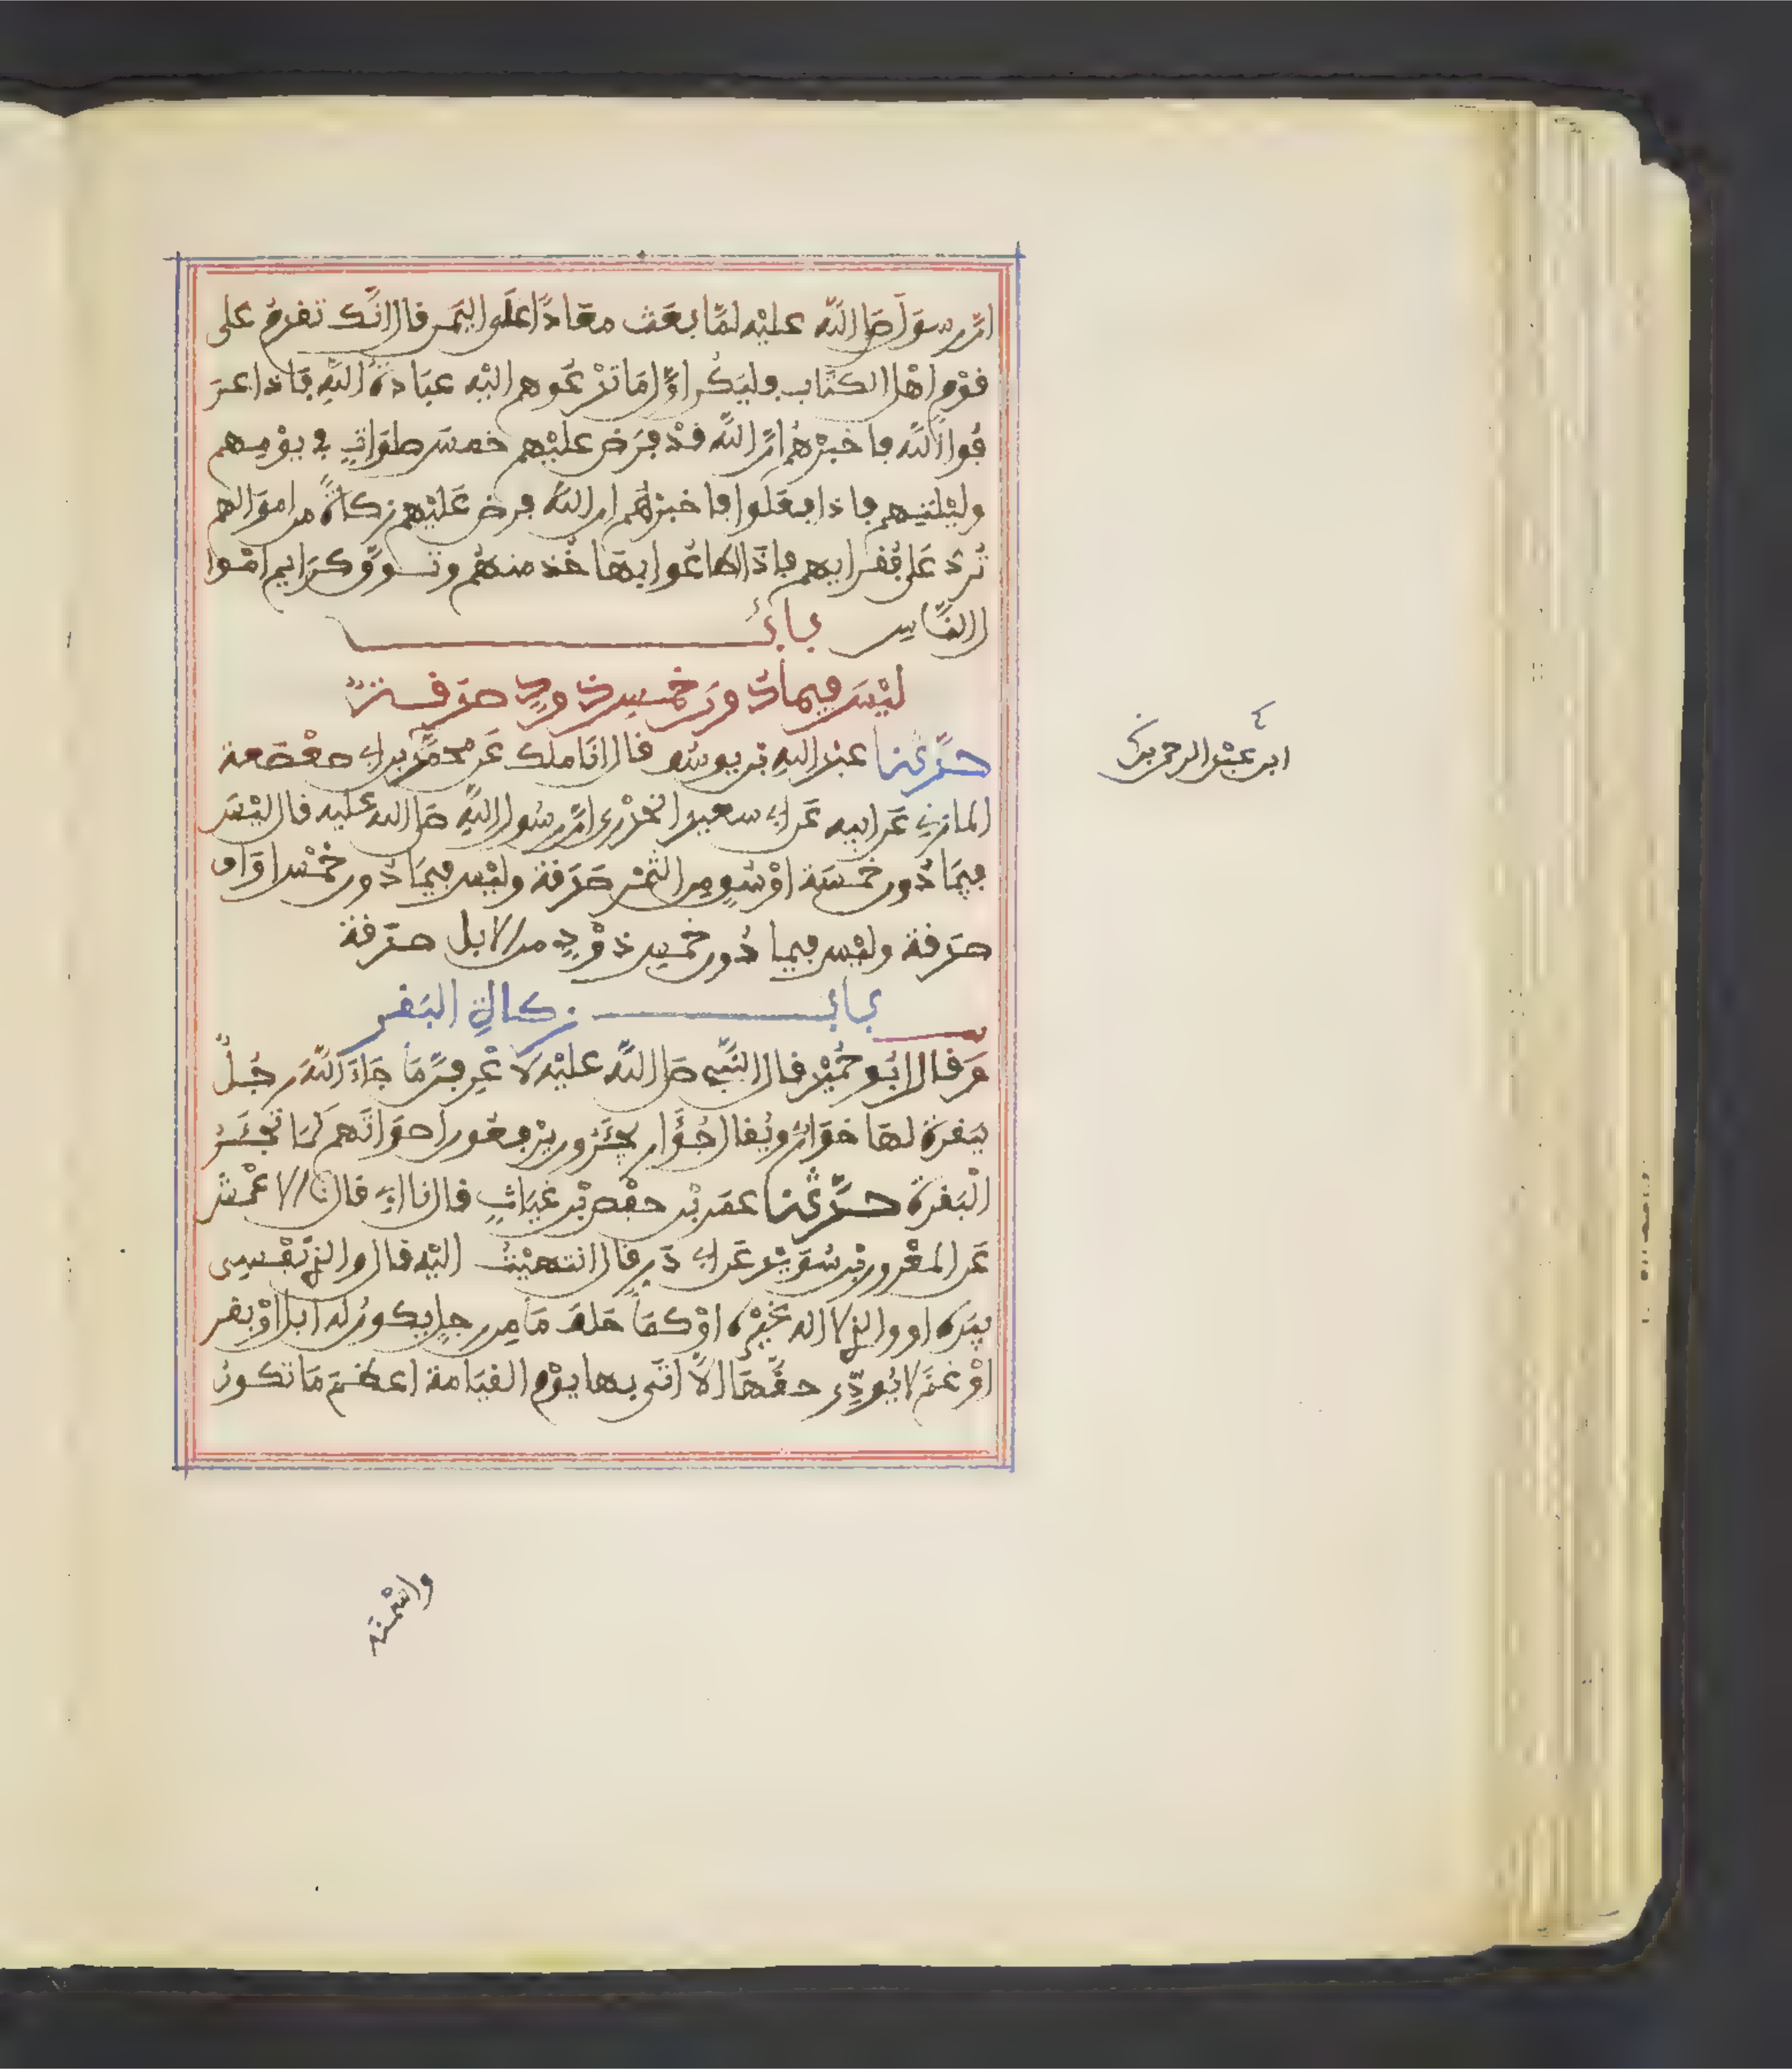 ان رسول صلى الله عليه لمّا بعث معاذًا على اليمن قال انّك تقدم على
قوم اهل الكتاب وليكن اوّل ما تدعوهم اليه عبادة الله فاذا عر
فوا الله فاخبرهم انّ الله قد فرض عليهم خمس صلوات في يومهم
وليلتهم فاذا فعلوا فاخبرهم ان الله فرض عليهم زكاة من اموالهم
تردّ على فقرايهم فاذا اطاعوا بها فخذ منهم وتوقّ كرايم اموا
ل الناس باب
ليس فيما دون خمس ذود صدقة
حدّثنا عبد الله بن يوسف قال انا ملك عن محمّد بن ابي صعصعة
المازني عن ابيه عن ابي سعيد الخدري انّ رسول الله صلى الله عليه قال ليس
فيما دون خمسة اوسق من التمر صدقة وليس فيما دون خمس اواق
صدقة وليس فيما دون خمس ذود من الابل صدقة
باب زكاة البقر
وقال ابو حميد قال النبي صلى الله عليه لاعرفنّ ما جاء الله رجل
ببقرة لها خوار ويقال جؤار يجئرون يرفعون اصواتهم كما تجئر
البقرة حدّثنا عمر بن حفص بن غياث قال نا ابي قال نا الاعمش
عن المعرور بن سويد عن ابي ذر قال انتهيت اليه قال والذي نفسي
بيده او والذي لا اله غيره او كما حلف ما من رجل يكون له ابل او بقر
او غنم لا يودّي حقّها الّا اتى بها يوم القيامة اعظم ما تكون
ابن عبد الرحمن بن
واسمنه